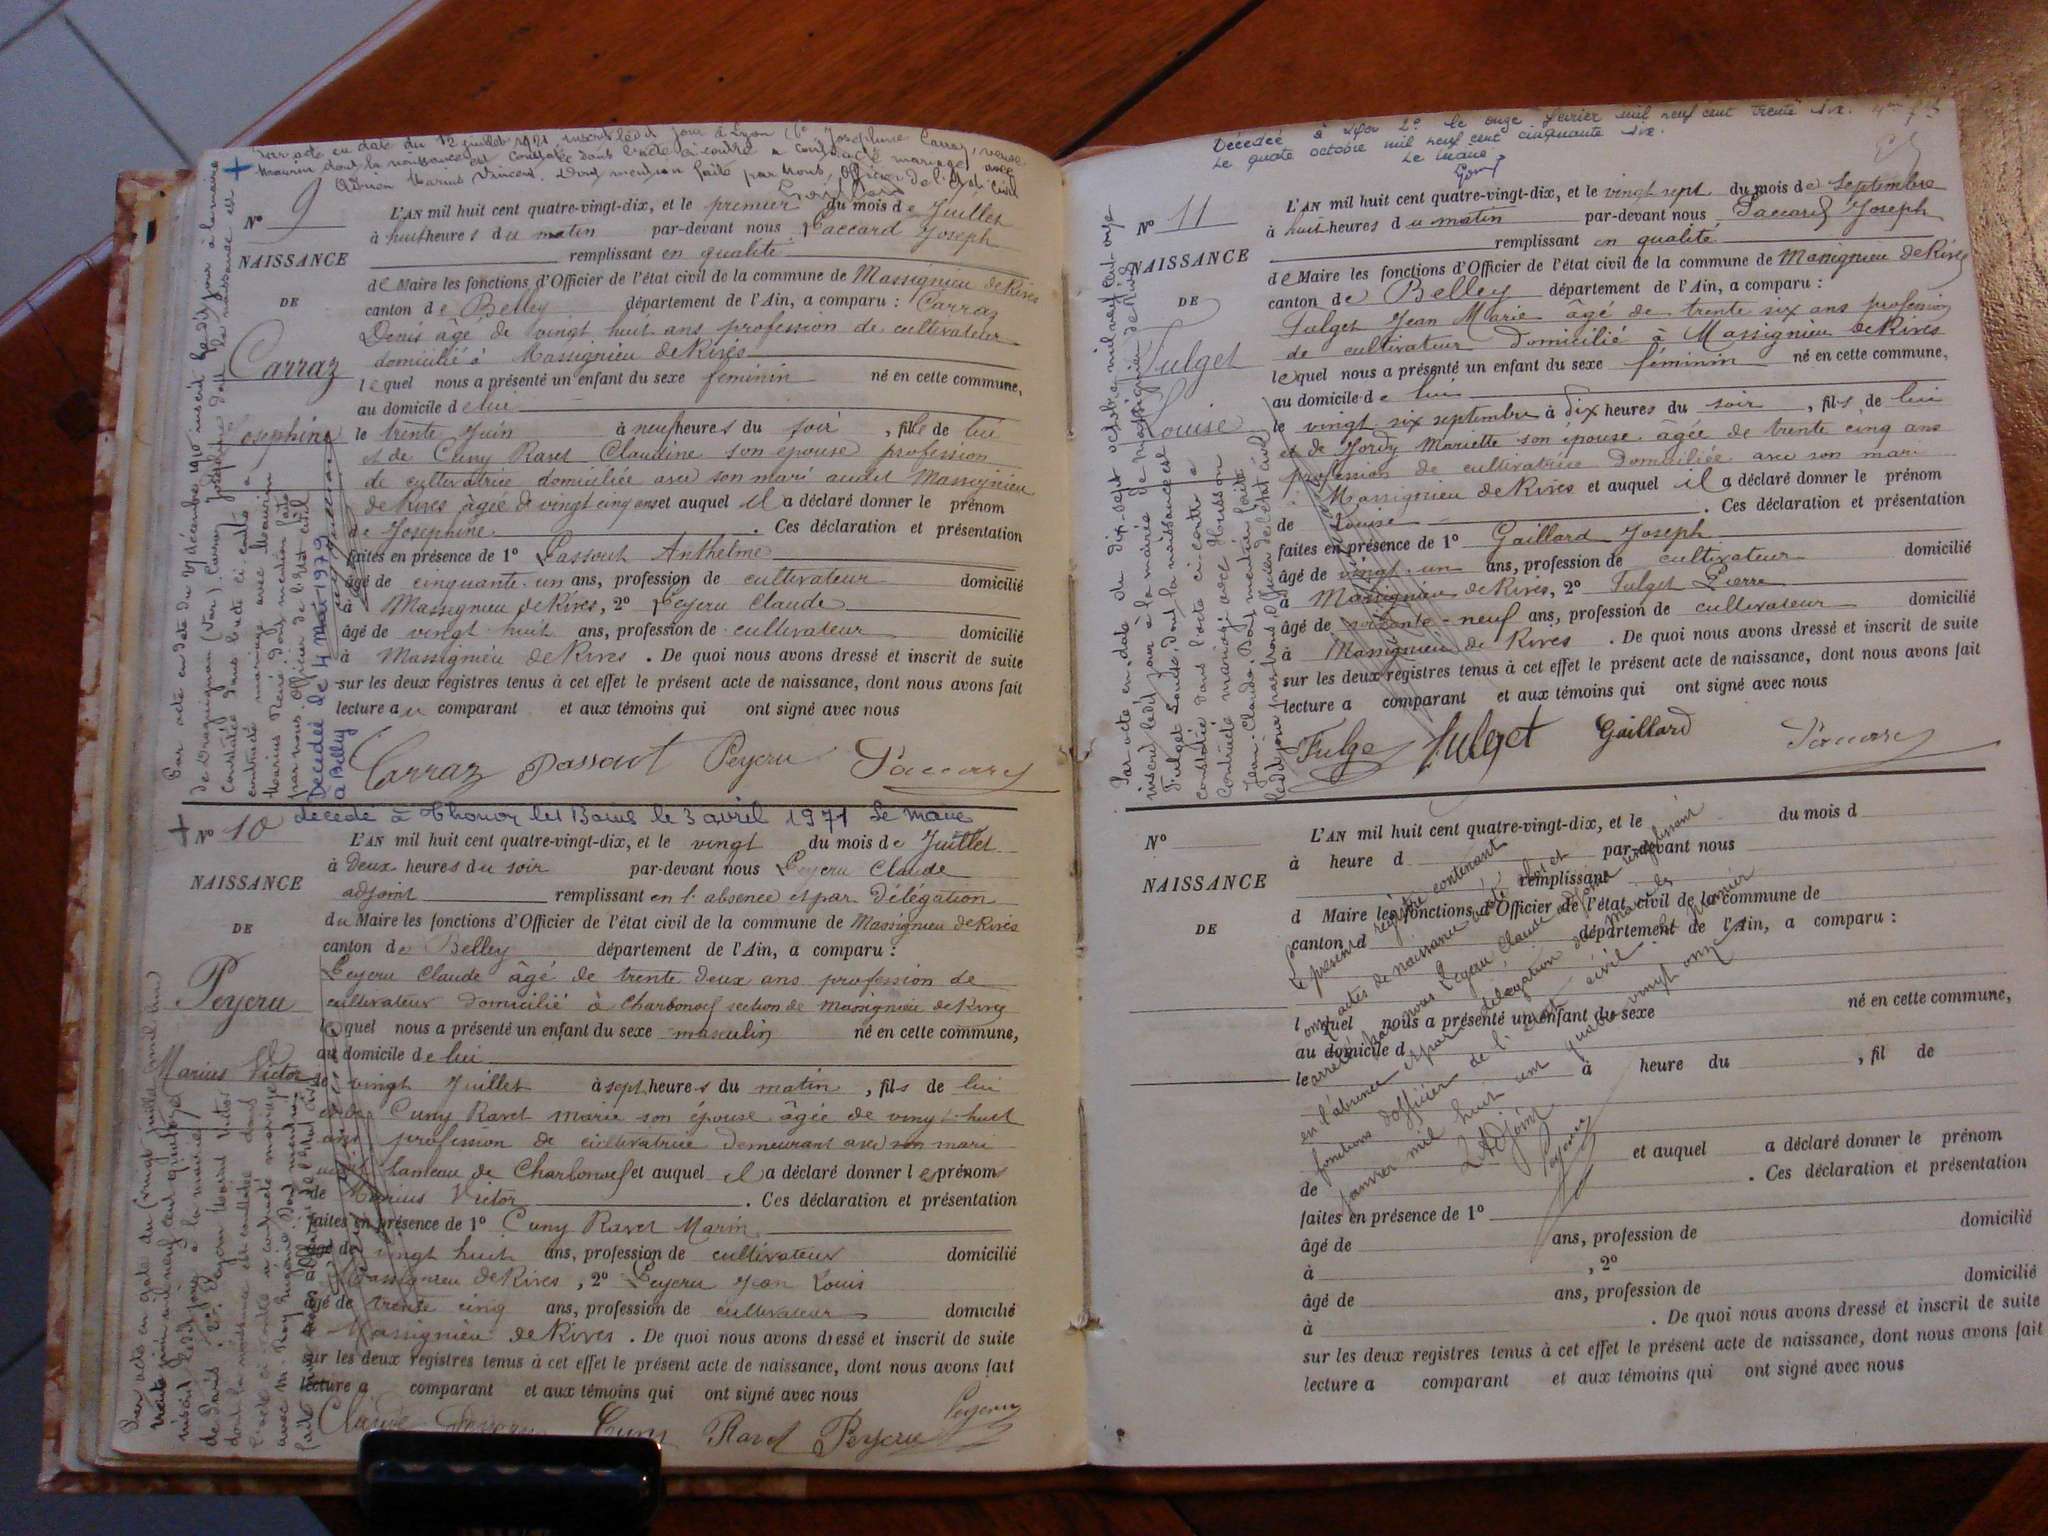 par acte en date du 12 juillet 1921 inscrit le dit jour à Lyon Josephine Carraz, veuve
Maurin dont la naissance est constatée dans l'acte ci-contre a contracté mariage avec
Adrien Marius Vincent. Dont mention faite par Nous, Officier de l'état civil
N° 9
NAISSANCE
DE
Carraz
Josephine
L'AN mil huit cent quatre-vingt-dix, et le premier du mois de Juillet
à huit heures du matin par-devant nous Paccard Joseph
remplissant en qualité
de Maire les fonctions d'Officier de l'état civil de la commune de Massignieu de Rives
canton de Belley département de l'Ain, a comparu : Carraz
Denis âgé de vingt huit ans profession de cultivateur
domicilié à Massignieu de Rives
lequel nous a présenté un enfant du sexe feminin né en cette commune,
au domicile de lui
le trente Juin à neuf heures du soir, fille de lui
et de Cuny Ravet Claudine son epouse profession
de cultivatrice domiciliée avec son mari audit Massignieu
de Rives âgée de vingt cinq ans et auquel il a déclaré donner le prénom
de Josephine. Ces déclaration et présentation
faites en présence de 1° Passout Anthelme
âgé de cinquante-un ans, profession de cultivateur domicilié
à Massignieu de Rives, 2° Peyeru Claude
âgé de vingt huit ans, profession de cultivateur domicilié
à Massignieu de Rives. De quoi nous avons dressé et inscrit de suite
sur les deux registres tenus à cet effet le présent acte de naissance, dont nous avons fait
lecture au comparant et aux témoins qui ont signé avec nous
Carraz Passout Peyeru Paccard
Par acte en date du 27 décembre 1910 inscrit le dit jour à la mairie
de Draguignan (Var). Carraz Josephine dont la naissance est
constatée dans l'acte ci-contre a
contracté mariage avec Maurin
Marius René dont mention faite
par nous officier de l'état civil
Décédée le 4 Mai 1979
à Belley
décédé à Thonon les Bains le 3 avril 1971 Le Maire
N° 10
NAISSANCE
DE
Peyeru
Marius Victor
L'AN mil huit cent quatre-vingt-dix, et le vingt du mois de Juillet
à deux heures du soir par-devant nous Peyeru Claude
adjoint remplissant en l'absence et par délégation
du Maire les fonctions d'Officier de l'état civil de la commune de Massignieu de Rives
canton de Belley département de l'Ain, a comparu :
Peyeru Claude âgé de trente deux ans profession de
cultivateur domicilié à Charbonod section de Massignieu de Rives
lequel nous a présenté un enfant du sexe masculin né en cette commune,
au domicile de lui
le vingt Juillet à sept heures du matin, fils de lui
et de Cuny Ravet marie son épouse âgée de vingt-huit
ans profession de cultivatrice demeurant avec son mari
audit hameau de Charbonod et auquel il a déclaré donner les prénoms
de Marius Victor. Ces déclaration et présentation
faites en présence de 1° Cuny Ravet Marin
âgé de vingt huit ans, profession de cultivateur domicilié
à Massignieu de Rives, 2° Peyeru Jean Louis
âgé de trente cinq ans, profession de cultivateur domicilié
à Massignieu de Rives. De quoi nous avons dressé et inscrit de suite
sur les deux registres tenus à cet effet le présent acte de naissance, dont nous avons fait
lecture a comparant et aux témoins qui ont signé avec nous
Claude Peyeru Cuny Ravet Peyeru Peyeru
Par acte en date du vingt juillet mil
inscrit le dit jour à la mairie
de Paris, 20e, Peyeru Marius Victor
dont la naissance est constatée dans
l'acte ci-contre a contracté mariage
avec M. Roy Eugénie Dont mention
Décédée à Lyon 2° le onze février mil neuf cent trente six.
Le quatre octobre mil neuf cent cinquante six.
Le Maire
N° 11
NAISSANCE
DE
Fulget
Louise
L'AN mil huit cent quatre-vingt-dix, et le vingt sept du mois de Septembre
à huit heures du matin par-devant nous Paccard Joseph
remplissant en qualité
de Maire les fonctions d'Officier de l'état civil de la commune de Massignieu de Rives
canton de Belley département de l'Ain, a comparu :
Fulget Jean Marie âgé de trente six ans profession
de cultivateur domicilié à Massignieu de Rives
lequel nous a présenté un enfant du sexe féminin né en cette commune,
au domicile de lui
le vingt six septembre à dix heures du soir, fils de lui
et de Jordy Mariette son épouse âgée de trente cinq ans
profession de cultivatrice domiciliée avec son mari
à Massignieu de Rives et auquel il a déclaré donner le prénom
de Louise. Ces déclaration et présentation
faites en présence de 1° Gaillard Joseph
âgé de vingt-un ans, profession de cultivateur domicilié
à Massignieu de Rives, 2° Fulget Pierre
âgé de soixante-neuf ans, profession de cultivateur domicilié
à Massignieu de Rives. De quoi nous avons dressé et inscrit de suite
sur les deux registres tenus à cet effet le présent acte de naissance, dont nous avons fait
lecture a comparant et aux témoins qui ont signé avec nous
Fulget Fulget Gaillard Paccard
Par acte en date du dix-sept octobre mil neuf cent onze
inscrit le dit jour à la mairie de Massignieu de Rives
Fulget Louise, dont la naissance est
constatée dans l'acte ci-contre a
contracté mariage avec Husson
Jean-Claude. Dont mention faite
le dit jour par nous Officier de l'état civil
N°
NAISSANCE
DE
L'AN mil huit cent quatre-vingt-dix, et le du mois d
à heure d par-devant nous
remplissant
d Maire les fonctions d'Officier de l'état civil de la commune de
canton d département de l'Ain, a comparu :
l quel nous a présenté un enfant du sexe né en cette commune,
au domicile d
le à heure du , fil de
et auquel a déclaré donner le prénom
de . Ces déclaration et présentation
faites en présence de 1°
âgé de ans, profession de domicilié
à , 2°
âgé de ans, profession de domicilié
à . De quoi nous avons dressé et inscrit de suite
sur les deux registres tenus à cet effet le présent acte de naissance, dont nous avons fait
lecture a comparant et aux témoins qui ont signé avec nous
Le présent registre contenant
onze actes de naissance a été clos et
arrêté par nous Peyeru Claude adjoint remplissant
en l'absence et par délégation du Maire les
fonctions d'officier de l'état civil le premier
janvier mil huit cent quatre vingt onze
L'Adjoint
Peyeru